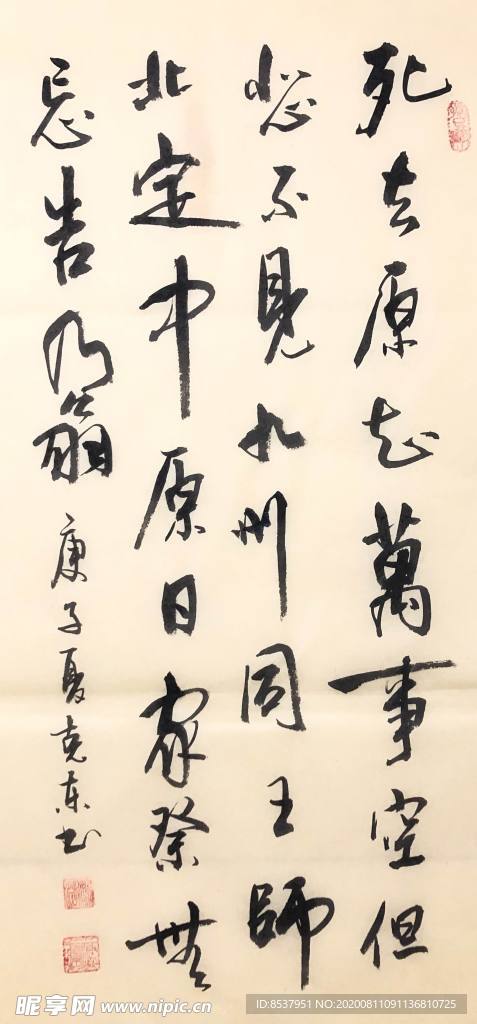 死去原知萬事空但
悲不見九州同王師
北定中原日家祭無
忘告乃翁 庚子夏克东书
昵享网 www.nipic.cn
ID:8537951 NO:20200811091136810725